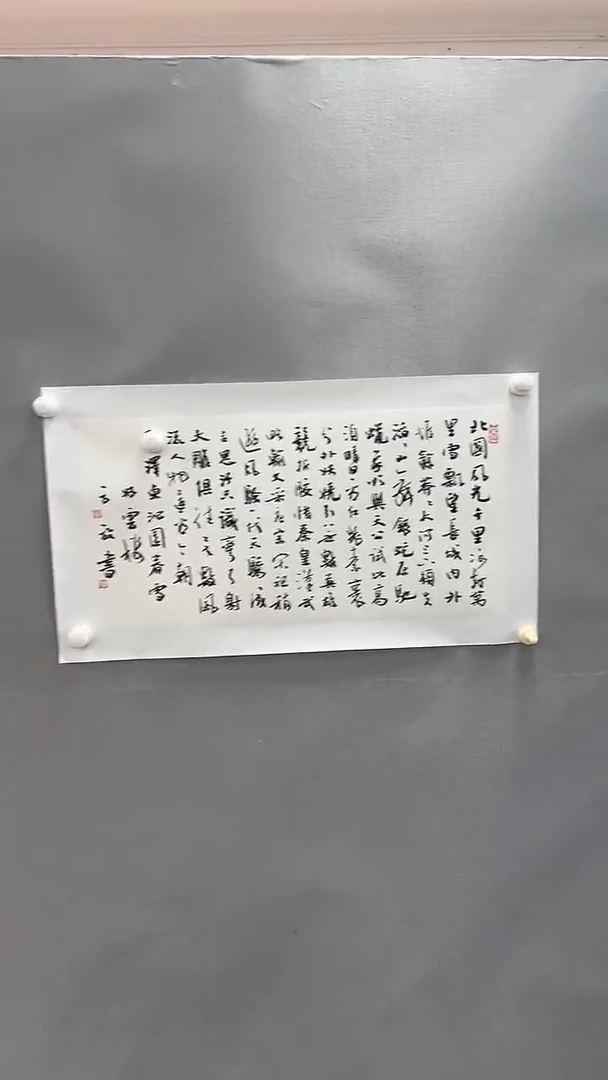 北國風光千里冰封萬
里雪飄望長城內外
惟餘莽〻大河上下頓失
滔〻山舞銀蛇原馳
蠟象欲與天公試比高
須晴日看紅裝素裹
分外妖嬈引無數英雄
競折腰惜秦皇漢武
略輸文采唐宗宋祖稍
遜風騷一代天驕成
吉思汗只識彎弓射
大雕俱往矣數風
流人物還看今朝
澤東沁園春雪
雲樓
書